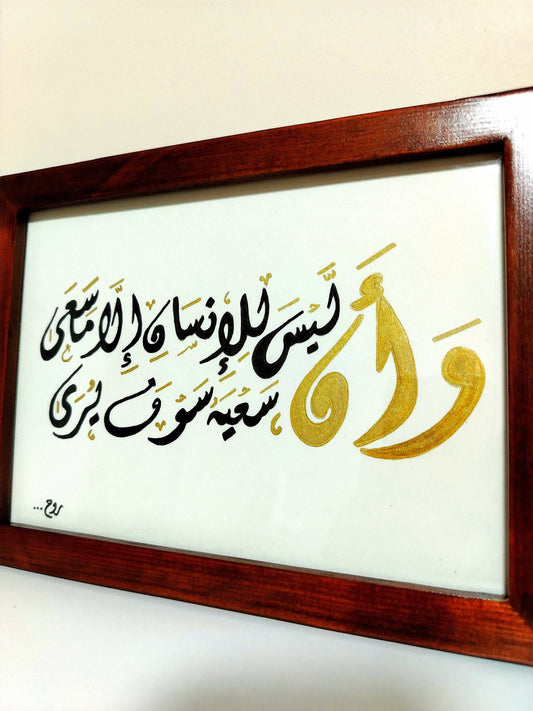 وَأَن لَّيْسَ لِلْإِنسَانِ إِلَّا مَا سَعَى
سَعْيَهُ سَوْفَ يُرَى
روح...